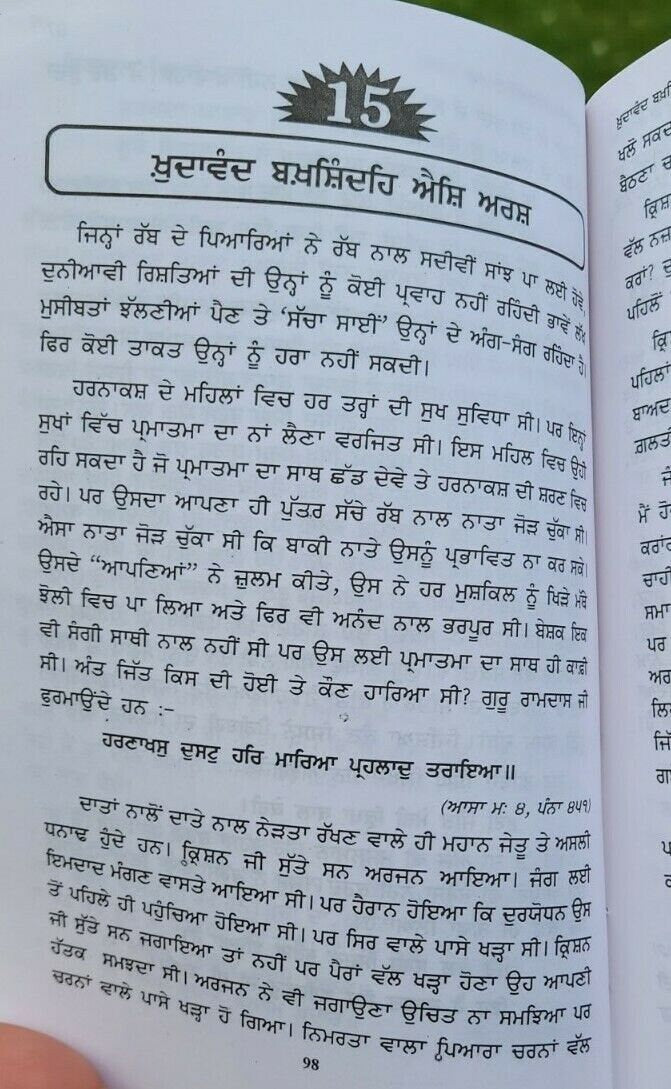 15
ਖ਼ੁਦਾਵੰਦ ਬਖ਼ਸ਼ਿੰਦਹਿ ਐਸ਼ਿ ਅਰਸ਼
ਜਿਨ੍ਹਾਂ ਰੱਬ ਦੇ ਪਿਆਰਿਆਂ ਨੇ ਰੱਬ ਨਾਲ ਸਦੀਵੀਂ ਸਾਂਝ ਪਾ ਲਈ ਹੋਵੇ,
ਦੁਨੀਆਵੀ ਰਿਸ਼ਤਿਆਂ ਦੀ ਉਨ੍ਹਾਂ ਨੂੰ ਕੋਈ ਪ੍ਰਵਾਹ ਨਹੀਂ ਰਹਿੰਦੀ ਭਾਵੇਂ ਲੱਖ
ਮੁਸੀਬਤਾਂ ਝੱਲਣੀਆਂ ਪੈਣ ਤੇ ‘ਸੱਚਾ ਸਾਈਂ’ ਉਨ੍ਹਾਂ ਦੇ ਅੰਗ-ਸੰਗ ਰਹਿੰਦਾ ਹੈ।
ਫਿਰ ਕੋਈ ਤਾਕਤ ਉਨ੍ਹਾਂ ਨੂੰ ਹਰਾ ਨਹੀਂ ਸਕਦੀ।
ਹਰਨਾਕਸ਼ ਦੇ ਮਹਿਲਾਂ ਵਿਚ ਹਰ ਤਰ੍ਹਾਂ ਦੀ ਸੁਖ ਸੁਵਿਧਾ ਸੀ। ਪਰ ਇਨ੍ਹਾਂ
ਸੁਖਾਂ ਵਿੱਚ ਪ੍ਰਮਾਤਮਾ ਦਾ ਨਾਂ ਲੈਣਾ ਵਰਜਿਤ ਸੀ। ਇਸ ਮਹਿਲ ਵਿਚ ਉਹੀ
ਰਹਿ ਸਕਦਾ ਹੈ ਜੋ ਪ੍ਰਮਾਤਮਾ ਦਾ ਸਾਥ ਛੱਡ ਦੇਵੇ ਤੇ ਹਰਨਾਕਸ਼ ਦੀ ਸ਼ਰਣ ਵਿਚ
ਰਹੇ। ਪਰ ਉਸਦਾ ਆਪਣਾ ਹੀ ਪੁੱਤਰ ਸੱਚੇ ਰੱਬ ਨਾਲ ਨਾਤਾ ਜੋੜ ਚੁੱਕਾ ਸੀ।
ਐਸਾ ਨਾਤਾ ਜੋੜ ਚੁੱਕਾ ਸੀ ਕਿ ਬਾਕੀ ਨਾਤੇ ਉਸਨੂੰ ਪ੍ਰਭਾਵਿਤ ਨਾ ਕਰ ਸਕੇ।
ਉਸਦੇ “ਆਪਣਿਆਂ” ਨੇ ਜ਼ੁਲਮ ਕੀਤੇ, ਉਸ ਨੇ ਹਰ ਮੁਸ਼ਕਿਲ ਨੂੰ ਖਿੜੇ ਮੱਥੇ
ਝੋਲੀ ਵਿਚ ਪਾ ਲਿਆ ਅਤੇ ਫਿਰ ਵੀ ਅਨੰਦ ਨਾਲ ਭਰਪੂਰ ਸੀ। ਬੇਸ਼ਕ ਇਕ
ਵੀ ਸੰਗੀ ਸਾਥੀ ਨਾਲ ਨਹੀਂ ਸੀ ਪਰ ਉਸ ਲਈ ਪ੍ਰਮਾਤਮਾ ਦਾ ਸਾਥ ਹੀ ਕਾਫ਼ੀ
ਸੀ। ਅੰਤ ਜਿੱਤ ਕਿਸ ਦੀ ਹੋਈ ਤੇ ਕੌਣ ਹਾਰਿਆ ਸੀ? ਗੁਰੂ ਰਾਮਦਾਸ ਜੀ
ਫੁਰਮਾਉਂਦੇ ਹਨ :-
ਹਰਣਾਖਸੁ ਦੁਸਟੁ ਹਰਿ ਮਾਰਿਆ ਪ੍ਰਹਲਾਦੁ ਤਰਾਇਆ॥
(ਆਸਾ ਮ: ੪, ਪੰਨਾ ੪੫੧)
ਦਾਤਾਂ ਨਾਲੋਂ ਦਾਤੇ ਨਾਲ ਨੇੜਤਾ ਰੱਖਣ ਵਾਲੇ ਹੀ ਮਹਾਨ ਜੇਤੂ ਤੇ ਅਸਲੀ
ਧਨਾਢ ਹੁੰਦੇ ਹਨ। ਕ੍ਰਿਸ਼ਨ ਜੀ ਸੁੱਤੇ ਸਨ ਅਰਜਨ ਆਇਆ। ਜੰਗ ਲਈ
ਇਮਦਾਦ ਮੰਗਣ ਵਾਸਤੇ ਆਇਆ ਸੀ। ਪਰ ਹੈਰਾਨ ਹੋਇਆ ਕਿ ਦੁਰਯੋਧਨ ਉਸ
ਤੋਂ ਪਹਿਲੇ ਹੀ ਪਹੁੰਚਿਆ ਹੋਇਆ ਸੀ। ਪਰ ਸਿਰ ਵਾਲੇ ਪਾਸੇ ਖੜ੍ਹਾ ਸੀ। ਕ੍ਰਿਸ਼ਨ
ਜੀ ਸੁੱਤੇ ਸਨ ਜਗਾਇਆ ਤਾਂ ਨਹੀਂ ਪਰ ਪੈਰਾਂ ਵੱਲ ਖੜ੍ਹਾ ਹੋਣਾ ਉਹ ਆਪਣੀ
ਹੱਤਕ ਸਮਝਦਾ ਸੀ। ਅਰਜਨ ਨੇ ਵੀ ਜਗਾਉਣਾ ਉਚਿਤ ਨਾ ਸਮਝਿਆ ਪਰ
ਚਰਨਾਂ ਵਾਲੇ ਪਾਸੇ ਖੜ੍ਹਾ ਹੋ ਗਿਆ। ਨਿਮਰਤਾ ਵਾਲਾ ਪਿਆਰਾ ਚਰਨਾਂ ਵੱਲ
98
ਖੁਦਾਵੰਦ
ਖਲੋ ਸਕਦ
ਬੈਠਣਾ ਚ
ਵੱਲ ਨਜ਼
ਕਰਾਂ?
ਪਹਿਲੋਂ
ਪਹਿਲਾਂ
ਬਾਅਦ
ਗ਼ਲਤੀ
ਮੈਂ ਹੋ
ਸਮਾਂ
ਪਰ